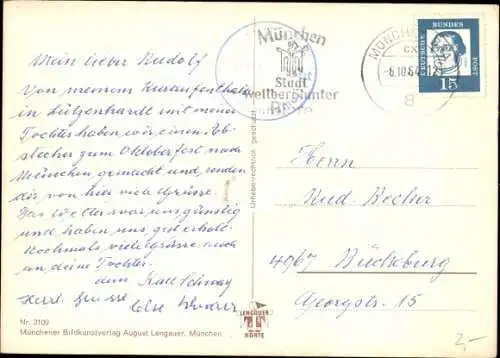 Mein lieber Rudolf
Von meinem Kuraufenthalt
in Lützenhardt mit meiner
Tochter haben wir einen Ab-
stecher zum Oktoberfest nach
München gemacht und senden
dir von hier viele Grüsse.
Das Wetter war uns günstig
und haben uns gut erholt.
Nochmals viele Grüsse auch
an deine Tochter.
dein Karl
Herzl. Grüsse
Else
Nr. 2109
Münchener Bildkunstverlag August Lengauer, München
München
Stadt
weltberühmter
MÜNCHEN
-6.10.64
8
DEUTSCHE BUNDESPOST
15
Herrn
Rud. Becher
4967 Bückeburg
Georgstr. 15
LENGAUER
KARTE
2,-